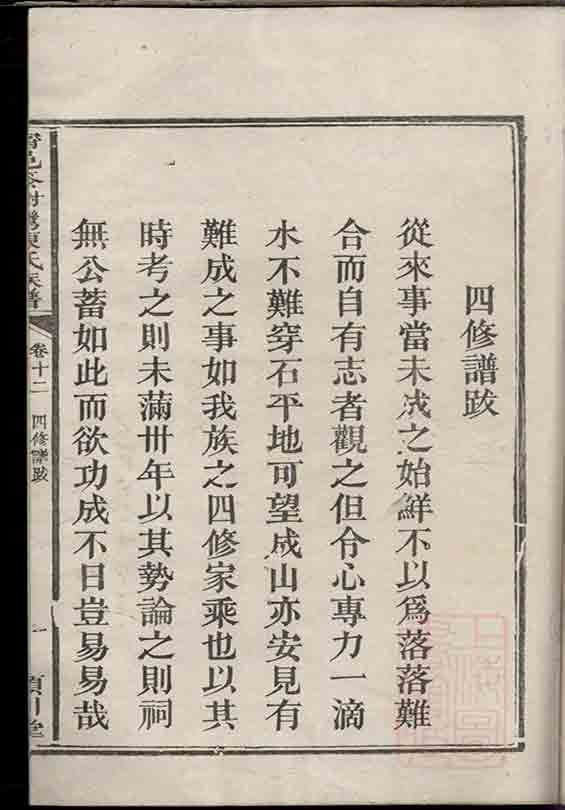 四修譜跋
從來事當未成之始鮮不以爲落落難
合而自有志者觀之但令心專力一滴
水不難穿石平地可望成山亦安見有
難成之事如我族之四修家乘也以其
時考之則未滿卅年以其勢論之則祠
無公蓄如此而欲功成不日豈易易哉
氏族譜
卷十二
四修譜跋
一
堂